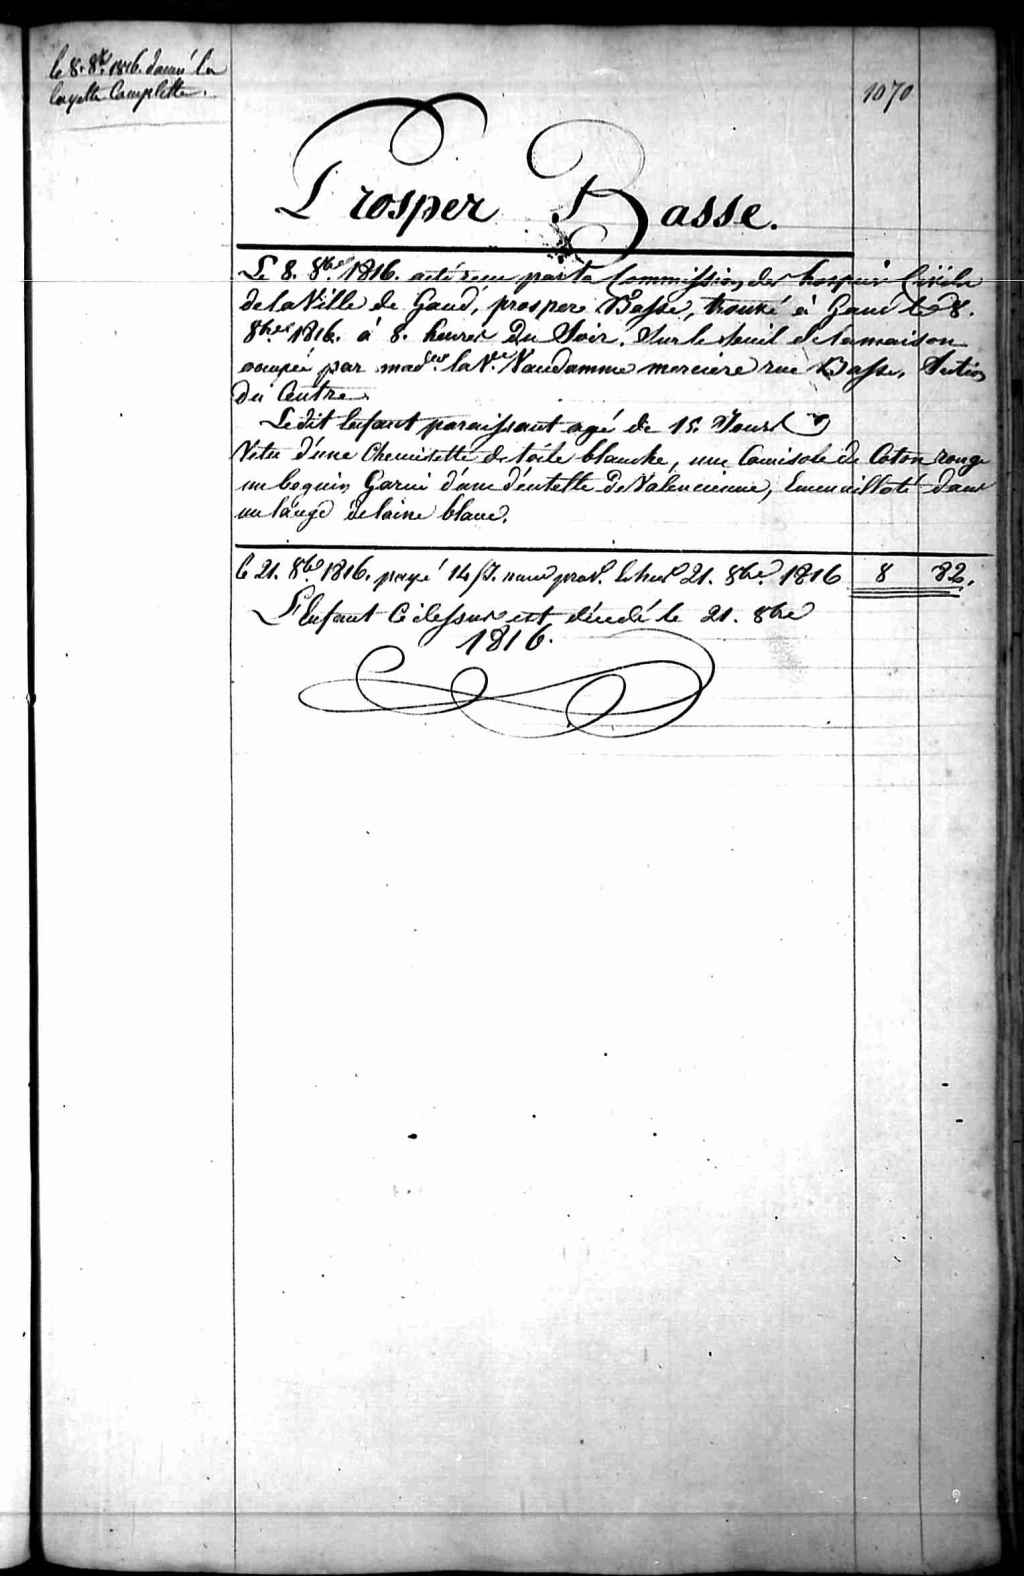 le 8. 8bre 1816. donné la
layette Complette.
1070
Prosper Basse.
Le 8. 8bre 1816. a été reçu par la Commission des hospices Civils
de la Ville de Gand, prosper Basse, trouvé à Gand le 8.
8bre 1816. à 8. heures du Soir, Sur le Seuil de la maison
occupée par mad.me la V.e Vandamme merciere rue Basse, Section
du Centre.
Ledit Enfant paraissant agé de 15. Jours
Vetu d'une Chemisette de toile blanche, une Camisole de Coton rouge
un beguin Garni d'une dentelle De Valencienne, Emmailloté dans
un lange de laine blanc.
le 21. 8bre 1816. payé 14 21. 8bre 1816 8 82.
L'Enfant Ci dessus est décédé le 21. 8bre
1816.